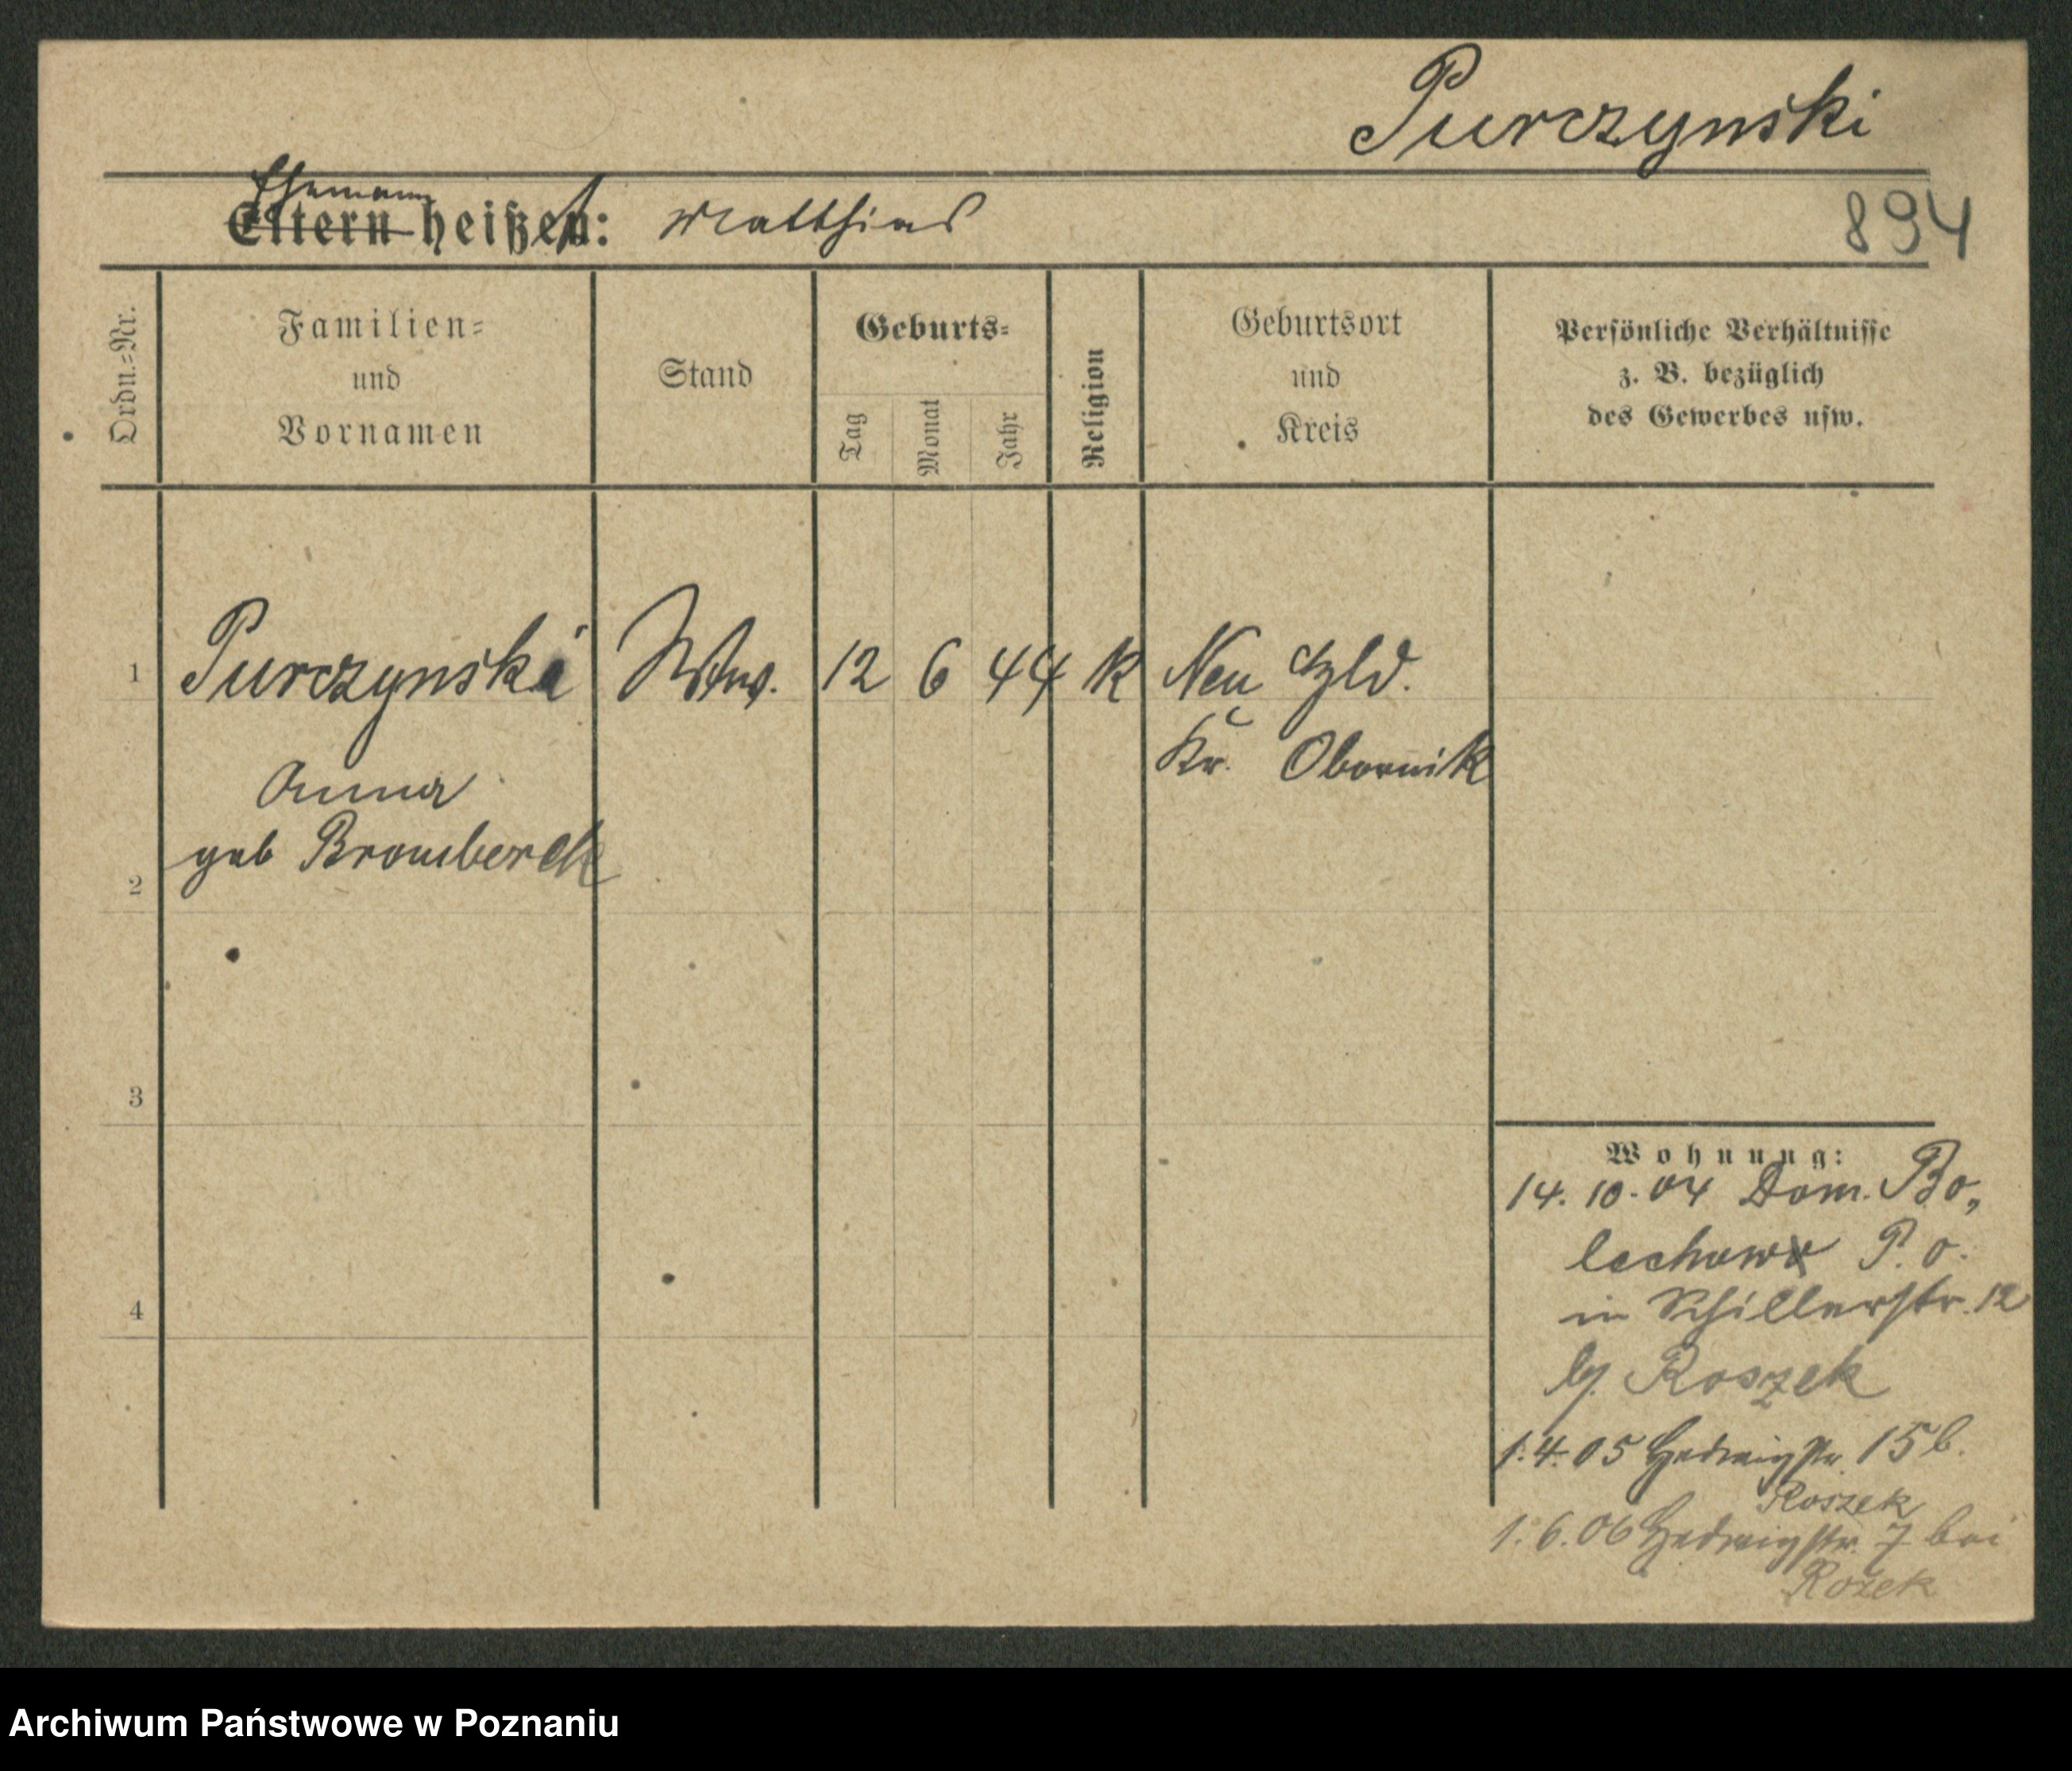 Purczynski
Ehemann
Eltern heißen: Matthias
894
Ordn.=Nr.
Familien=
und
Vornamen
Stand
Geburts=
Tag
Monat
Jahr
Religion
Geburtsort
und
Kreis
Persönliche Verhältnisse
z. B. bezüglich
des Gewerbes usw.
1 Purczynska Wtw. 12 6 44 K Neu
Kr. Obornik
Anna
geb Bromberek
2
3
4
Wohnung:
14. 10. 04 Dom. Bo„
lechowo P. o.
in Schillerstr. 12
Roszek
1. 4. 05 Hedwigstr. 15 b.
Roszek
1. 6. 06 Hedwigstr. 7 bei
Rozek
Archiwum Państwowe w Poznaniu